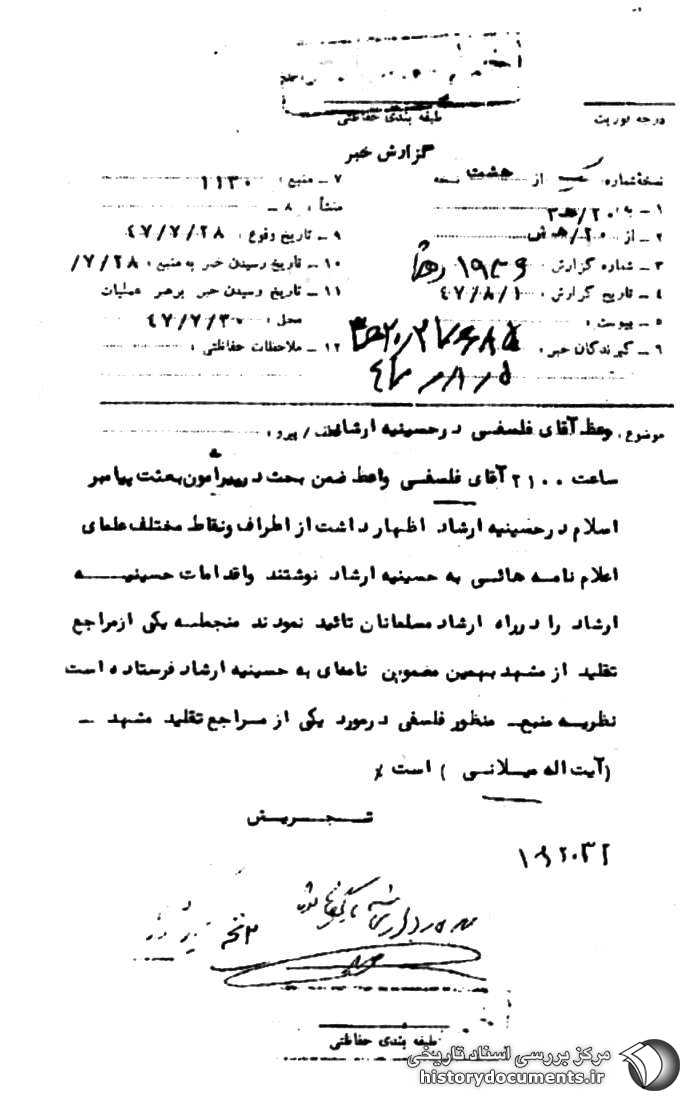 طبقه بندی حفاظتی
درجه فوریت
گزارش خبر
نسخهٔ شماره یک از هشت نسخه
۱ - به : ۲۰/ ۳ه
۲ - از : ۲۰/ ه ش
۳ - شماره گزارش :
۴ - تاریخ گزارش : ۴۷/۸/۱
۵ - پیوست :
۶ - گیرندگان خبر :
۷ - منبع : ۱۱۳۰
۸ - منشأ :
۹ - تاریخ وقوع : ۴۷/۷/۲۸
۱۰ - تاریخ رسیدن خبر به منبع : ۷/۲۸/
۱۱ - تاریخ رسیدن خبر برهبر عملیات
محل : ۴۷/۷/۳۰
۱۲ - ملاحظات حفاظتی :
موضوع : وعظ آقای فلسفی در حسینیه ارشاد عطف / پیرو :
ساعت ۲۱۰۰ آقای فلسفی واعظ ضمن بحث در پیرامون بعثت پیامبر
اسلام در حسینیه ارشاد اظهار داشت از اطراف ونقاط مختلف علمای
اعلام نامه هائی به حسینیه ارشاد نوشتند واقدامات حسینیه
ارشاد را در راه ارشاد مسلمانان تائید نمودند منجمله یکی از مراجع
تقلید از مشهد بهمین مضمون نامه‌ای به حسینیه ارشاد فرستاده است
نظریه منبع - منظور فلسفی در مورد یکی از مراجع تقلید مشهد -
(آیت اله میلانی ) است
تجریش
طبقه بندی حفاظتی
مرکز بررسی اسناد تاریخی
historydocuments.ir